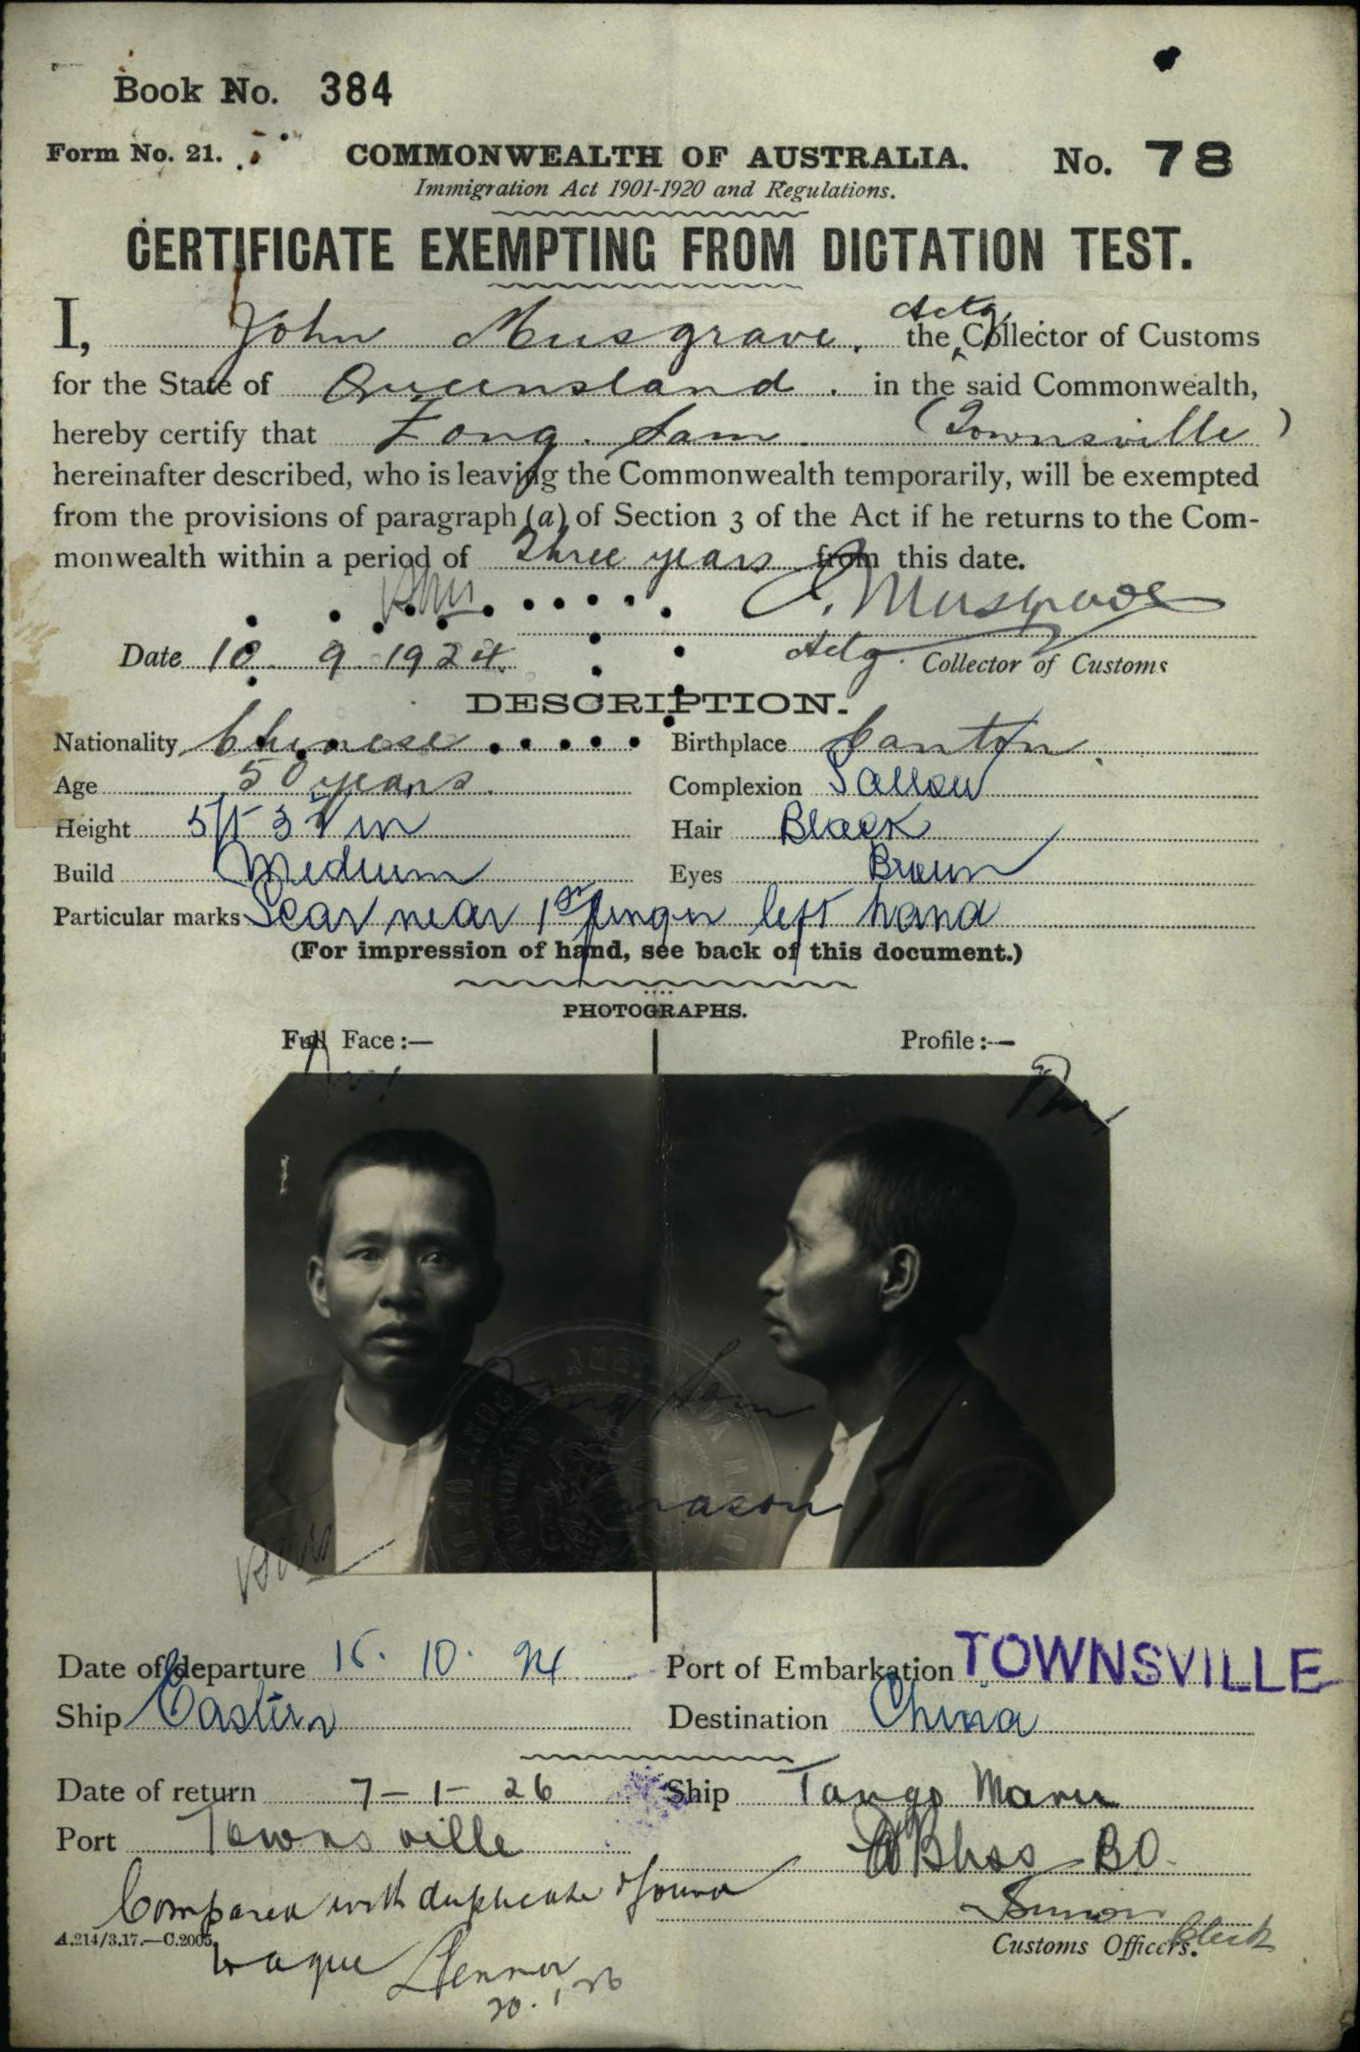 Book No. 384
Form No. 21. COMMONWEALTH OF AUSTRALIA. No. 78
Immigration Act 1901-1920 and Regulations.
CERTIFICATE EXEMPTING FROM DICTATION TEST.
I, John Musgrave, the Actg. Collector of Customs
for the State of Queensland. in the said Commonwealth,
hereby certify that Fong. Sam. (Townsville)
hereinafter described, who is leaving the Commonwealth temporarily, will be exempted
from the provisions of paragraph (a) of Section 3 of the Act if he returns to the Com-
monwealth within a period of Three years from this date.
J. Musgrave
Date 10. 9. 1924. Actg. Collector of Customs
DESCRIPTION.
Nationality Chinese Birthplace Canton.
Age 50 years. Complexion Sallow
Height 5ft 3 in Hair Black
Build Medium Eyes Brown
Particular marks Scar near 1st finger left hand
(For impression of hand, see back of this document.)
PHOTOGRAPHS.
Full Face:— Profile:—
Sam
Date of departure 10. 24 Port of Embarkation TOWNSVILLE
Ship Eastern Destination China
Date of return 7-1-26 Ship Tango Maru
Port Townsville Bliss BO.
Compared with duplicate & found
A.214/3.17.—C.2005.
Customs Officers. Clerk
20.1.26